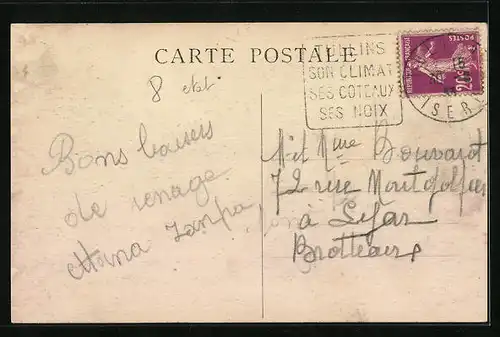 CARTE POSTALE
TULLINS
SON CLIMAT
SES COTEAUX
SES NOIX
POSTES
REPUBLIQUE FRANÇAISE
20c
ISER
8 etat
Bons baisers
de renage
M et Mme Bouvard
72 rue Montgolfier
à
Brotteaux